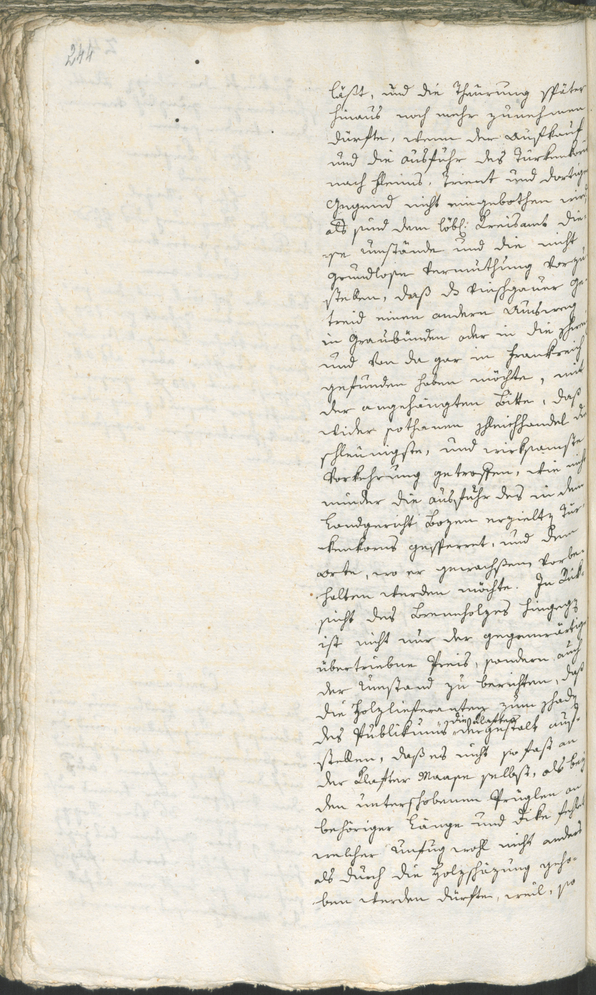 244
läßt, und die Theurung später
hinaus noch mehr zunehmen
dürfte, wenn der Aufkauf
und die Ausfuhr des Türkenkorn
nach Fleims, Trient und dortige
Gegend nicht eingebothen wird
als sind dem löbl: Kreisamt die-
se Umstände und die nicht
grundlose Vermuthung vorzu
stellen, daß ds Vinschgauer Ge-
treid einen andern Ausweeg
in Graubünden oder in die
und von da gar in Frankreich
gefunden haben möchte, mit
der angehängten Bitte, daß
wider sothanen Schleichhandel die
schleunigste, und wirksamste
Vorkehrung getroffen, wie nicht
minder die Ausfuhr des in dem
Landgericht Bozen erzielten Tür-
kenkorns gesperret, und dem
Orte, wo er gewachsen vorbe-
halten werden möchte. In Rük-
sicht des Brennholzes hingegen
ist nicht nur der gegenwärtige
übertriebne Preis, sondern auch
der Umstand zu berichten, daß
die Holzlieferanten zum Schade
des Publikums die Klafter dergestalt auf-
stellen, daß es nicht so fast an
der Klafter Maase selbst, als bey
den unterschobenen Prüglen an
behöriger Länge und Dike fehlet
welcher Unfug wohl nicht anders
als durch die Holzschäzung geho-
ben werden dürfte, weil, so